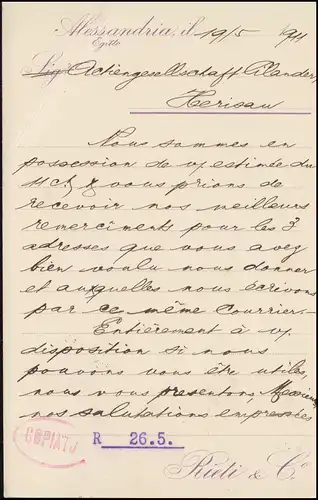 Alessandria, il 19/5 1911
Egitto
Sig. Actiengesellschaft Cilander,
Herisau
Nous sommes en
possession de v/ estimée du
11 ct & vous prions de
recevoir nos meilleurs
remerciments pour les 3
adresses que vous avez
bien voulu nous donner
et auxquelles nous écrivons
par ce même courrier.-
Entièrement à v/
disposition si nous
pouvons vous être utiles,
nous vous présentons, Messieurs,
nos salutations empressées
COPIATO
R 26.5.
& Co